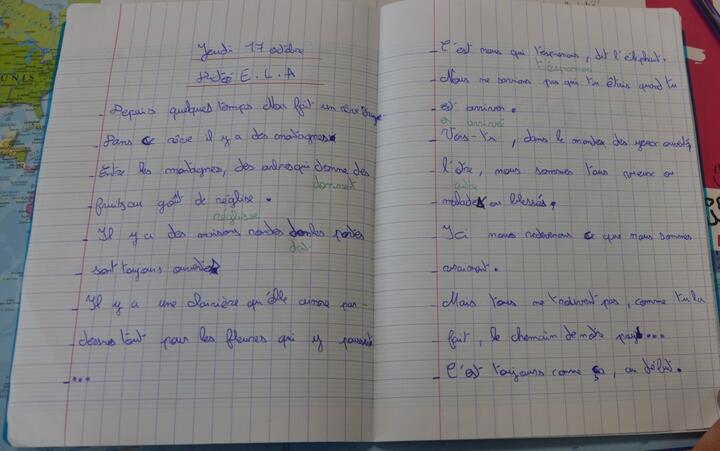 Jeudi 17 octobre
Dictée E.L.A
- Depuis quelques temps Nour fait un rêve étrange.
Dans ce rêve il y a des montagnes
- Entre les montagnes, des arbres qui donne des
donnent
fruits au goût de réglise.
réglisse
- Il y a des maisons rondes donles portes
dont
sont toujours ouvertes
- Il y a une clairière qu'elle aime par-
dessus tout pour les fleures qui y poussent
- ...
- C'est nous qui t'espionons, dit l'éléphant.
t'espionnons
- Nous ne savions pas qui tu étais quand tu
est arriver.
es arrivé
- Vois-tu, dans le monde des yeux ouverts,
l'otre, nous sommes tous vieux ou
autre
malades ou blessés,
- Ici nous redevenons ce que nous sommes
vraiment.
- Mais tous ne trouvent pas, comme tu la
fait, le chemain de notre pays...
- C'est toujours comme ça, au début.
UNIS